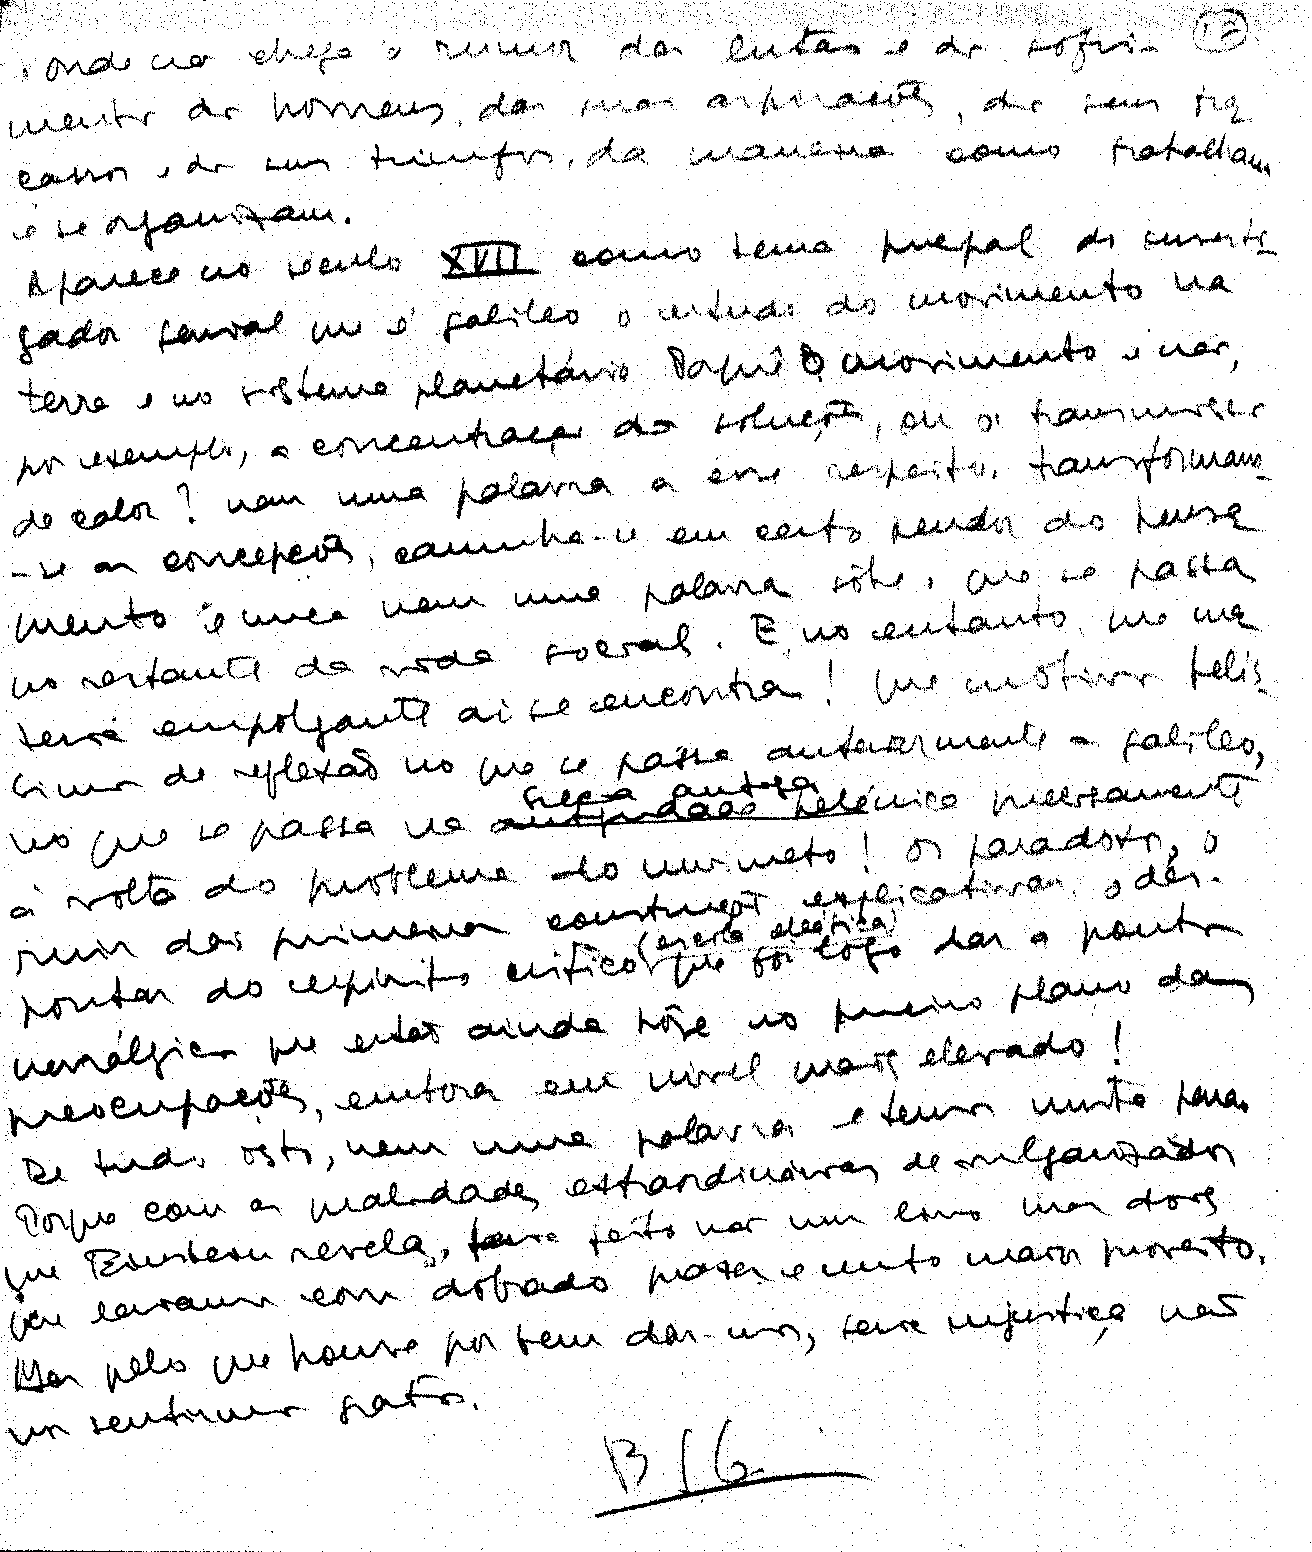 onde não chega o rumor das lutas e do sofri- 17
mento dos homens, das suas aspirações, dos seus fra
cassos e dos seus triunfos, da maneira como trabalham
e se organizam.
Aparece no século XVII como tema principal do investi-
gador genial que é Galileo o estudo do movimento na
terra e no sistema planetário Porquê o movimento e não,
por exemplo, a concentração das soluções, ou a transmissão
do calor? Nem uma palavra a esse respeito. transformam-
-se as concepções, caminha-se em certo pendor do pensa
mento e nunca nem uma palavra sôbre o que se passa
no restante da vida social. E, no entanto, que ma
teria empolgante aí se encontra! Que motivos belis-
simos de reflexão no que se passa anteriormente a Galileo,
no que se passa na antiguidade helénica Grecia antiga precisamente
à volta do problema do movimento! Os paradoxos, o
ruir das primeiras construções explicativas, o des-
pontar do espírito crítico (escola eleática) que foi logo dar a pontos
nevrálgicos que estão ainda hoje no primeiro plano das
preocupações, embora em nível mais elevado!
De tudo isto, nem uma palavra e temos muita pena.
Porque com as qualidades extraordinárias de vulgarizador
que Einstein revela, teria feito não um livro mas dois
que leriamos com dobrado prazer e muito maior proveito.
Mas pelo que houve por bem dar-nos, seria injustiça não
nos sentirmos gratos.